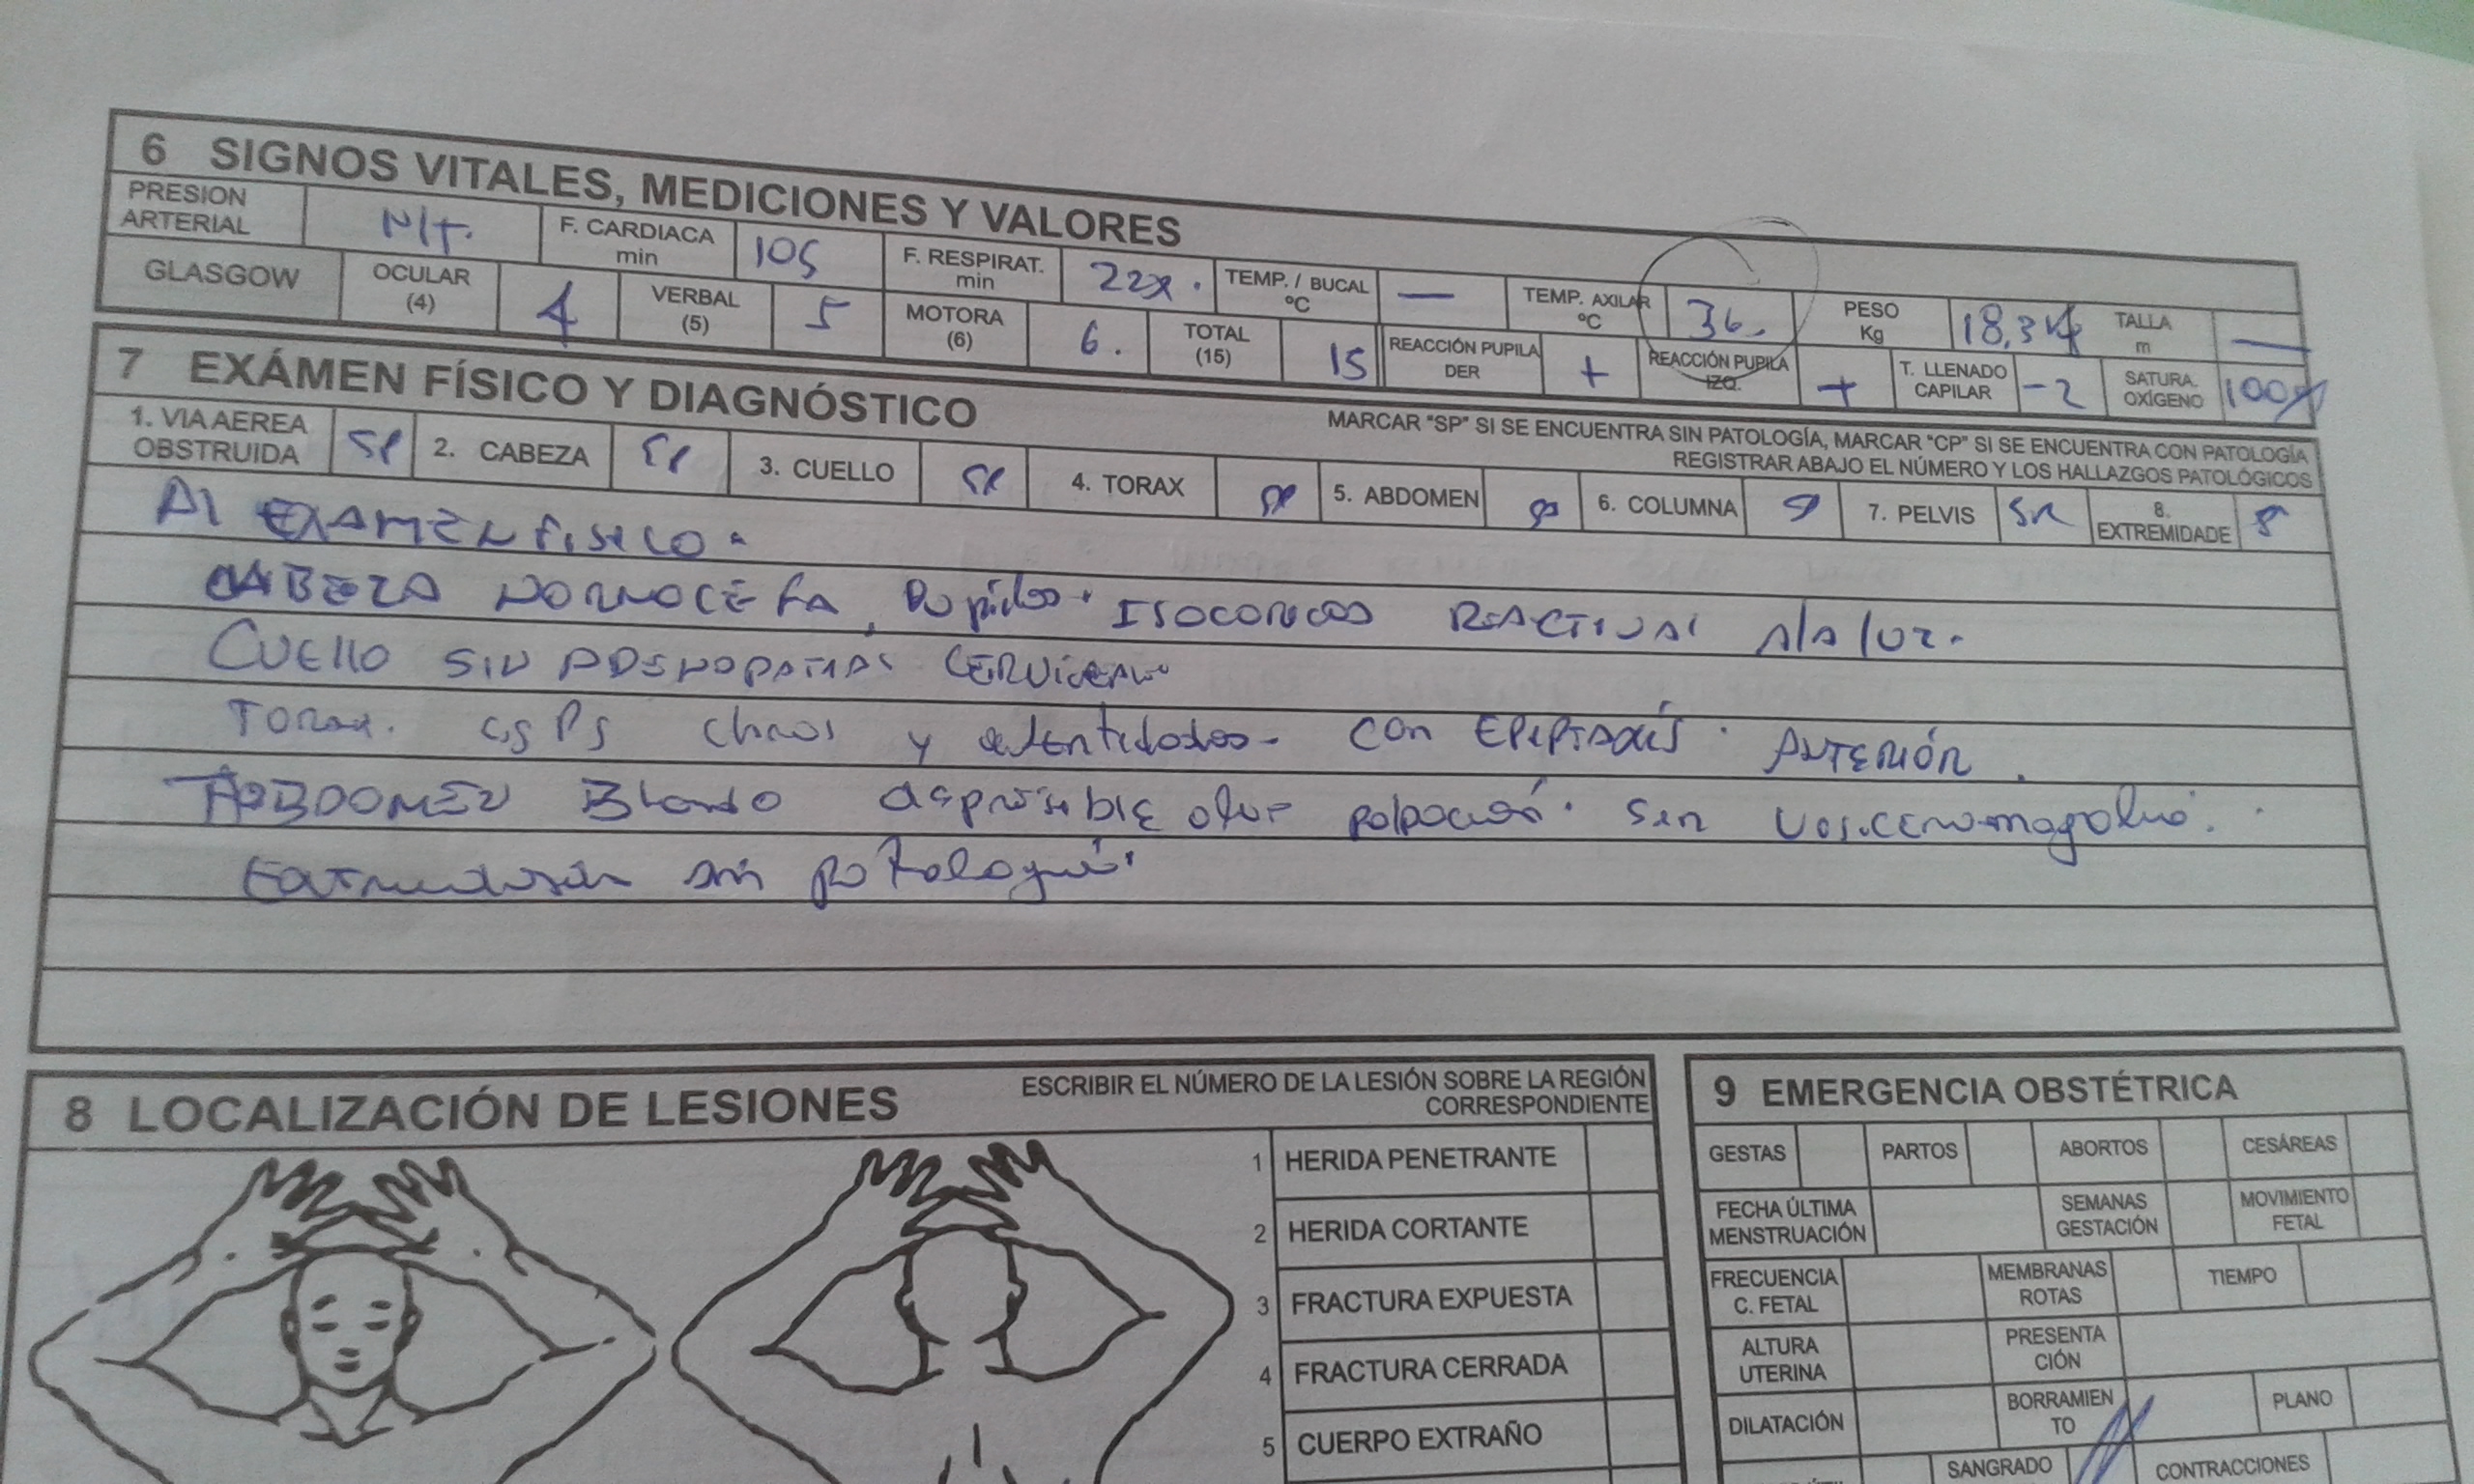 6 SIGNOS VITALES, MEDICIONES Y VALORES
PRESION ARTERIAL N/T. F. CARDIACA min 105 F. RESPIRAT. min 22x. TEMP. / BUCAL °C — TEMP. AXILAR °C 36. PESO Kg 18,3 Kg TALLA m —
GLASGOW OCULAR (4) 4 VERBAL (5) 5 MOTORA (6) 6. TOTAL (15) 15 REACCIÓN PUPILA DER + REACCIÓN PUPILA IZQ. + T. LLENADO CAPILAR -2 SATURA. OXÍGENO 100%
7 EXÁMEN FÍSICO Y DIAGNÓSTICO
MARCAR "SP" SI SE ENCUENTRA SIN PATOLOGÍA, MARCAR "CP" SI SE ENCUENTRA CON PATOLOGÍA
REGISTRAR ABAJO EL NÚMERO Y LOS HALLAZGOS PATOLÓGICOS
1. VIA AEREA OBSTRUIDA SP 2. CABEZA SP 3. CUELLO SP 4. TORAX SP 5. ABDOMEN SP 6. COLUMNA 7. PELVIS 8. EXTREMIDADE
Al EXAMEN FISICO.
CABEZA NORMOCEFA, Pupilas. ISOCORICAS REACTIVAS A la luz.
CUEllO SIN ADENOPATIAS CERVICALES
Torax. CsPs claros y ventilados. Con EPIPTAXIS. ANTERIÓR.
ABDOMEN Blando depresible a la palpación. Sin
Extremidades sin patologia
8 LOCALIZACIÓN DE LESIONES
ESCRIBIR EL NÚMERO DE LA LESIÓN SOBRE LA REGIÓN
CORRESPONDIENTE
1 HERIDA PENETRANTE
2 HERIDA CORTANTE
3 FRACTURA EXPUESTA
4 FRACTURA CERRADA
5 CUERPO EXTRAÑO
9 EMERGENCIA OBSTÉTRICA
GESTAS PARTOS ABORTOS CESÁREAS
FECHA ÚLTIMA MENSTRUACIÓN SEMANAS GESTACIÓN MOVIMIENTO FETAL
FRECUENCIA C. FETAL MEMBRANAS ROTAS TIEMPO
ALTURA UTERINA PRESENTA CIÓN
DILATACIÓN BORRAMIEN TO PLANO
SANGRADO CONTRACCIONES